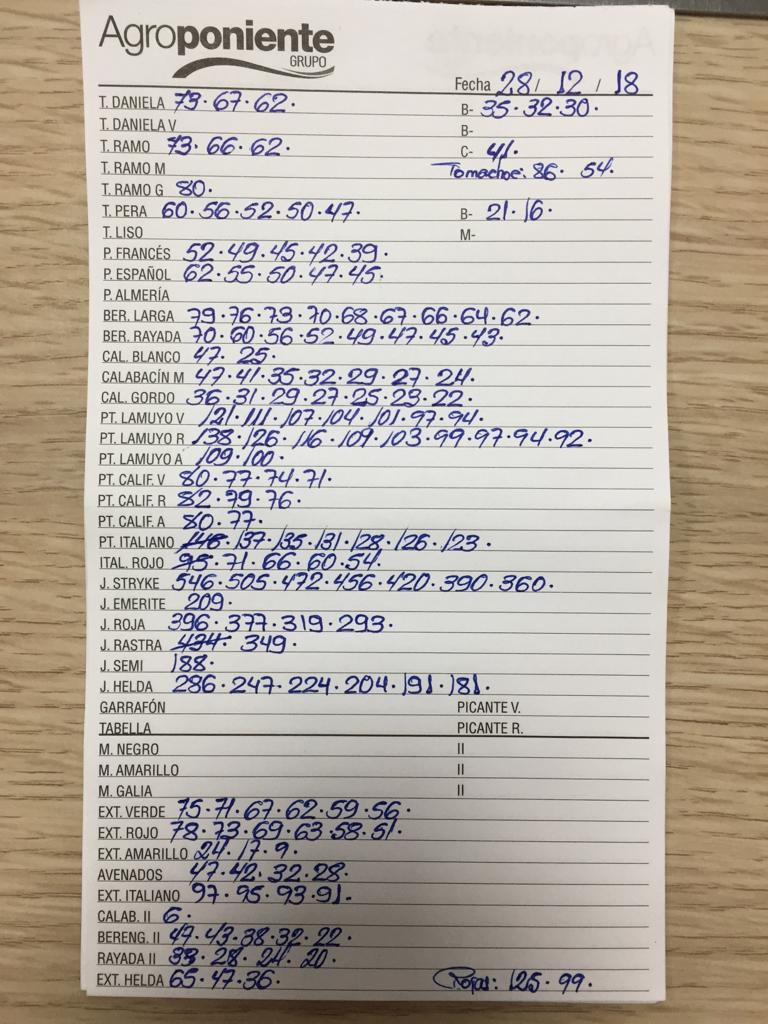 Agroponiente
GRUPO
Fecha 28/ 12 / 18
T. DANIELA 79. 67. 62. B- 35. 32. 30.
T. DANIELA V B-
T. RAMO 73. 66. 62. C- 41.
T. RAMO M Tomachoe: 86. 54.
T. RAMO G 80.
T. PERA 60. 56. 52. 50. 47. B- 21. 16.
T. LISO M-
P. FRANCÉS 52. 49. 45. 42. 39.
P. ESPAÑOL 62. 55. 50. 47. 45.
P. ALMERÍA
BER. LARGA 79. 76. 73. 70. 68. 67. 66. 64. 62.
BER. RAYADA 70. 60. 56. 52. 49. 47. 45. 43.
CAL. BLANCO 47. 25.
CALABACÍN M 47. 41. 35. 32. 29. 27. 24.
CAL. GORDO 36. 31. 29. 27. 25. 23. 22.
PT. LAMUYO V 121. 111. 107. 104. 101. 97. 94.
PT. LAMUYO R 138. 126. 116. 109. 103. 99. 97. 94. 92.
PT. LAMUYO A 109. 100.
PT. CALIF. V 80. 77. 74. 71.
PT. CALIF. R 82. 79. 76.
PT. CALIF. A 80. 77.
PT. ITALIANO 146. 137. 135. 131. 128. 126. 123.
ITAL. ROJO 95. 71. 66. 60. 54.
J. STRYKE 546. 505. 472. 456. 420. 390. 360.
J. EMERITE 209.
J. ROJA 396. 377. 319. 293.
J. RASTRA 434. 349.
J. SEMI 188.
J. HELDA 286. 247. 224. 204. 191. 181.
GARRAFÓN PICANTE V.
TABELLA PICANTE R.
M. NEGRO II
M. AMARILLO II
M. GALIA II
EXT. VERDE 75. 71. 67. 62. 59. 56.
EXT. ROJO 78. 73. 69. 63. 58. 51.
EXT. AMARILLO 24. 17. 9.
AVENADOS 47. 42. 32. 28.
EXT. ITALIANO 97. 95. 93. 91.
CALAB. II 6.
BERENG. II 49. 43. 38. 32. 22.
RAYADA II 33. 28. 24. 20.
EXT. HELDA 65. 47. 36. Rojas: 125. 99.